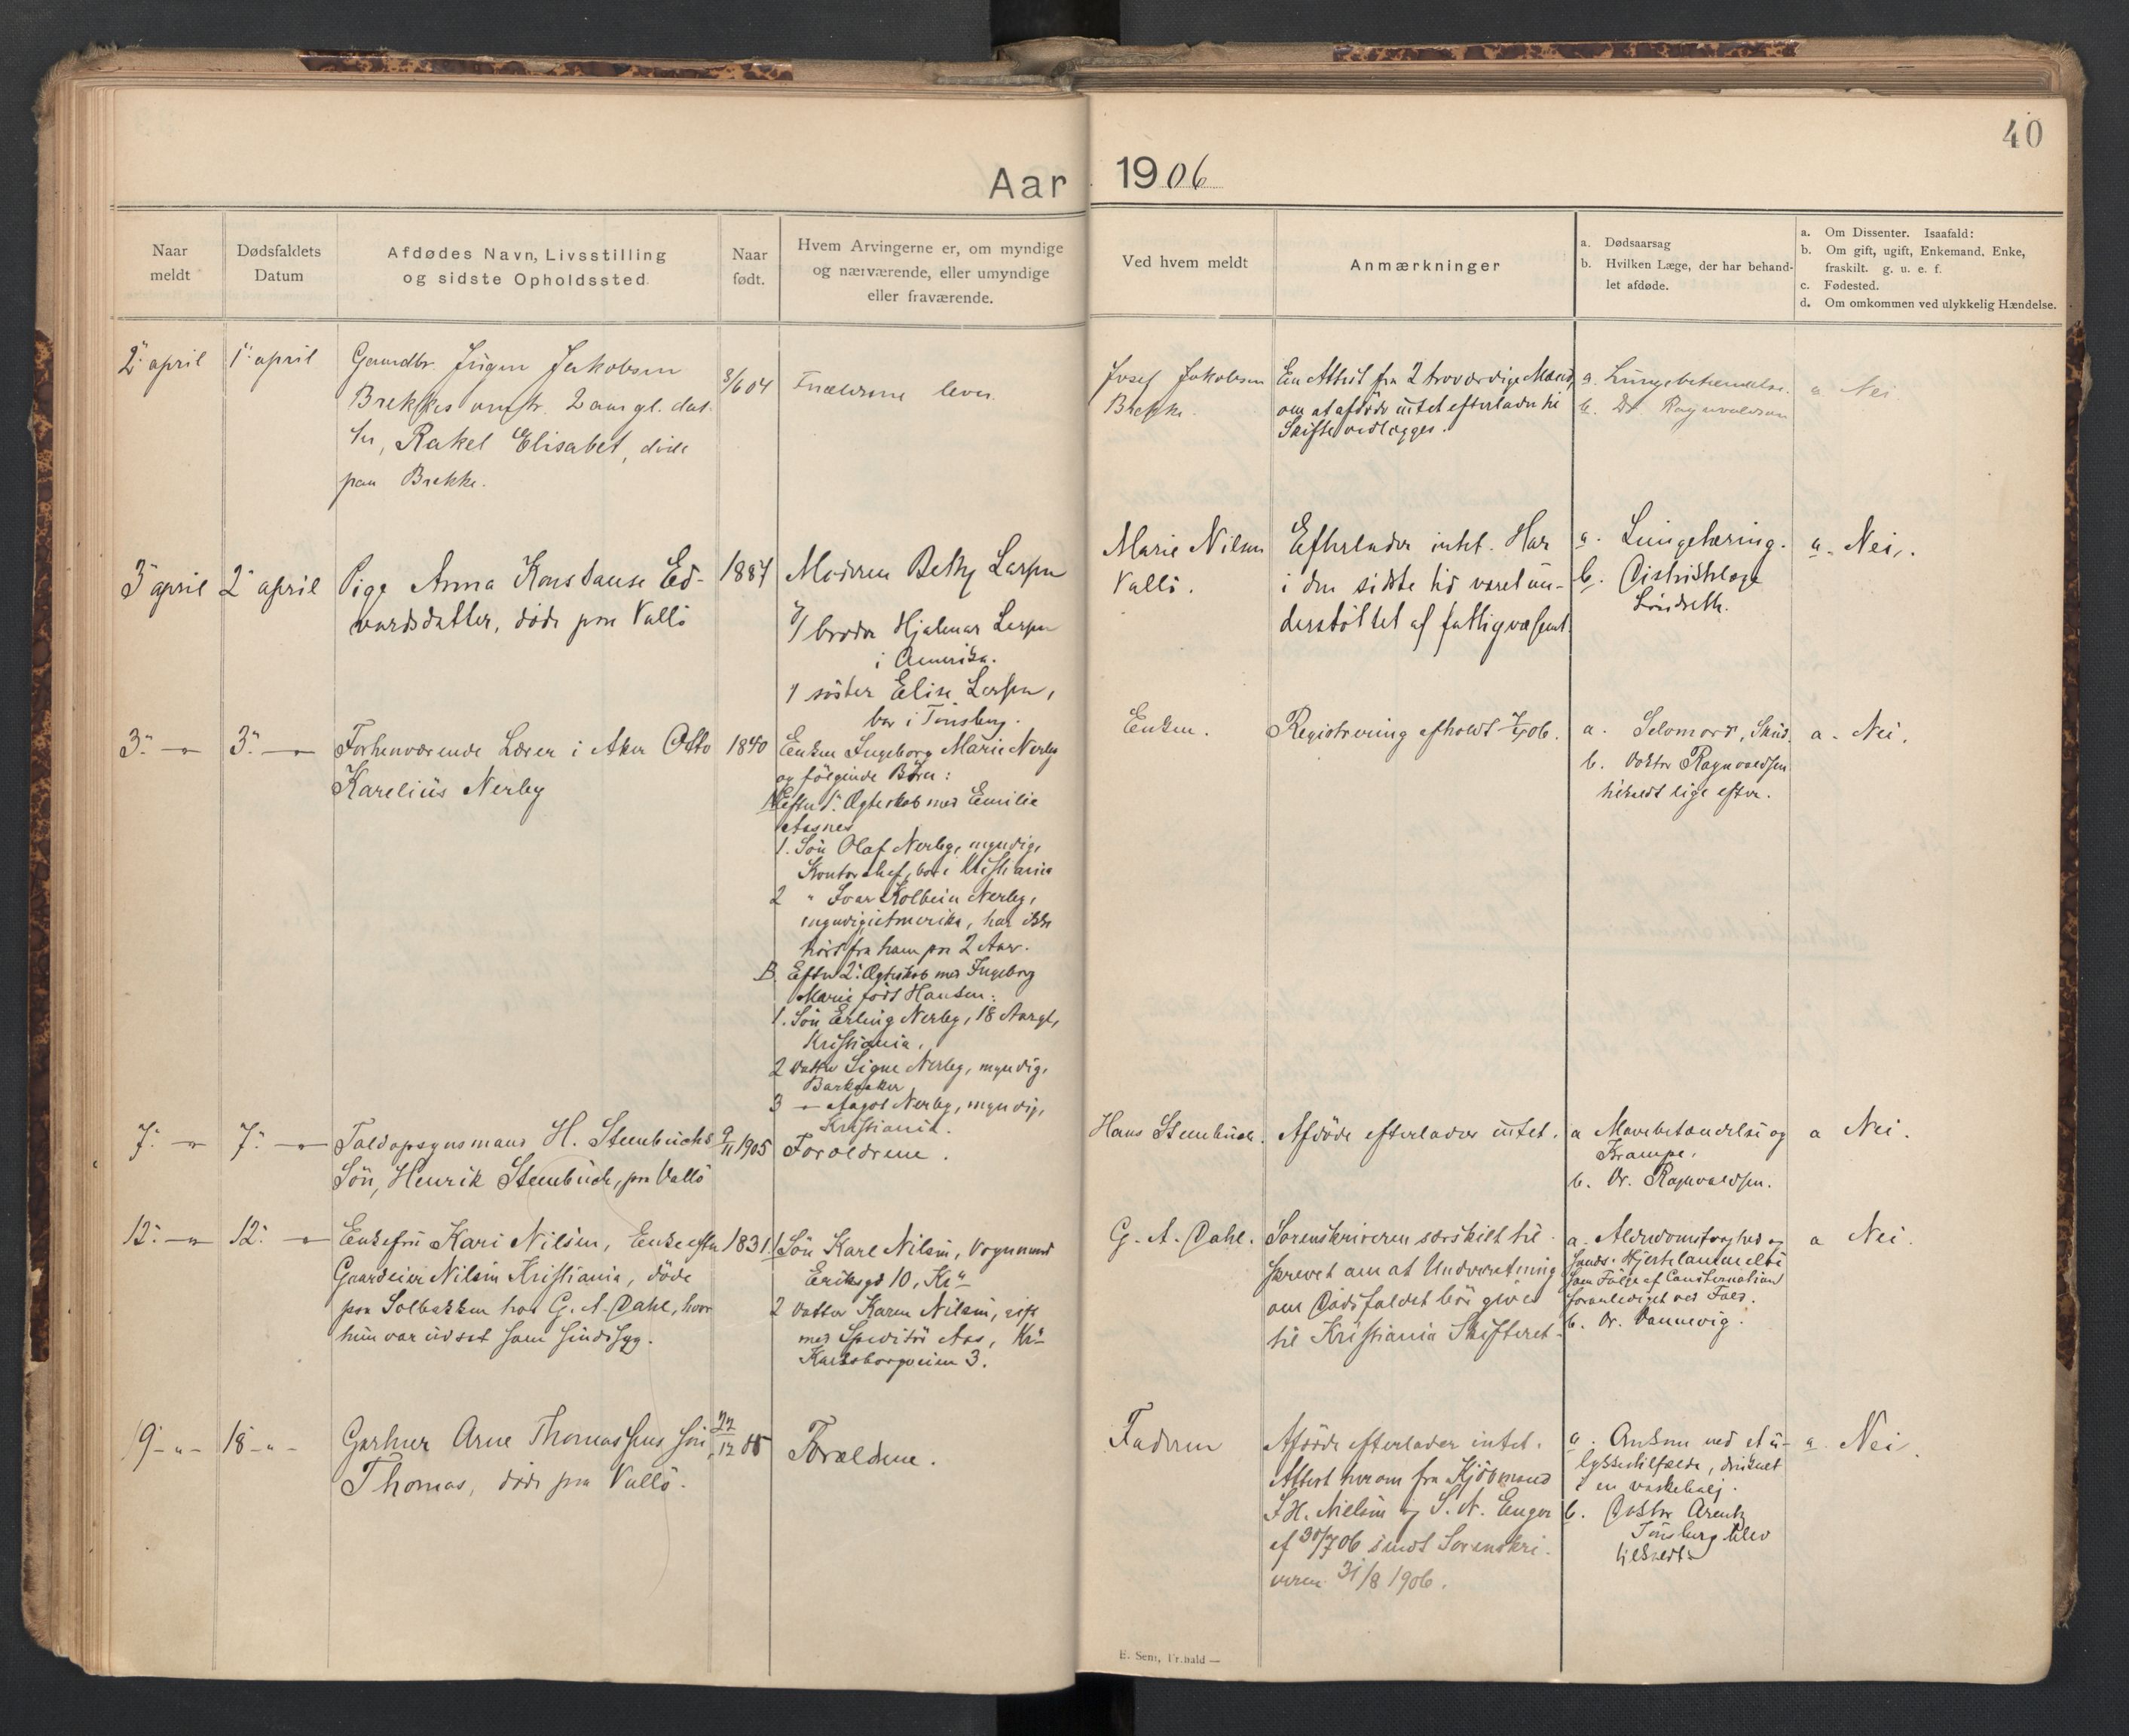 40
Aar 1906
Naar
meldt
Dødsfaldets
Datum
Afdødes Navn, Livsstilling
og sidste Opholdssted.
Naar
født.
Hvem Arvingerne er, om myndige
og nærværende, eller umyndige
eller fraværende.
Ved hvem meldt
Anmærkninger
a. Dødsaarsag
b. Hvilken Læge, der har behand-
let afdøde.
a. Om Dissenter. Isaafald:
b. Om gift, ugift, Enkemand, Enke,
fraskilt. g. u. e. f.
c. Fødested.
d. Om omkommen ved ulykkelig Hændelse.
2: april
1: april
Gaardbr. Jørgen Jakobsen
Brekkes 2 aar gl. dat-
ter, Rakel Elisabet, døde
paa Brekke.
8/6 04
Forældrene lever.
Josef Jakobsen
Brekke.
En Attest fra 2 troværdige Mænd,
om at afdøde intet efterlader til
Skifte vedlægges.
a. Lungebetændelse.
b. Dr. Ragnvaldsen
a Nei.
3 april
2 april
Pige Anna Konstanse Ed-
vardsdatter, døde paa Vallö
1887
Moderen Betty Larsen
1 broder Hjalmar Larsen
i Amerika.
1 söster Elise Larsen,
bor i Tönsberg.
Marie Nilsen
Vallö.
Efterlader intet. Har
i den sidste tid været un-
derstöttet af fattigvæsenet.
a. Lungetæring.
b. Distriktslæge
Lindseth.
a. Nei.
3: — " —
3: — " —
Forhenværende Lærer i Aker Otto
Karelius Nerby
1840
Enken Ingeborg Marie Nerby
og fölgende Börn:
A Efter 1: Ægteskab med Emilie
Aasnes
1. Sön Olaf Nerby, myndig,
Kontorchef, bor i Kristiania
2 " Ivar Kolbein Nerby,
myndig i Amerika, har ikke
hört fra ham paa 2 Aar.
B. Efter 2: Ægteskab med Ingeborg
Marie född Hansen:
1. Sön Erling Nerby, 18 Aar gl,
Kristiania.
2 Datter Signe Nerby, myndig,
Barkaaker
3 — " — Aagot Nerby, myndig,
Kristiania.
Enken.
Registrering afholdt 06.
a. Selvmord, Skud.
b. Doktor Ragnvaldsen
tilkaldt lige efter.
a. Nei.
7: — " —
7: — " —
Toldopsynsmand H. Steenbuchs
Sön, Henrik Steenbuch, paa Vallö
9/11 1905
Foraeldrene.
Hans Steenbuch.
Afdöde efterlader intet.
a Mavebetændelse og
Krampe.
b. Dr. Ragnvaldsen.
a Nei.
12: — " —
12: — " —
Enkefru Kari Nilsen, Enke efter
Gaardeier Nilsen Kristiania, döde
paa Solbakken hos G. A. Dahl, hvor
hun var udsat som sindssyg.
1831
1 Sön Karl Nilsen, Vognmand
Eriksgd 10, Kr:a
2 Datter Karen Nilsen, gift
med Speditör Aas, Kr:a
Karlsborgveien 3.
G. A. Dahl.
Sorenskriveren særskilt til-
skrevet om at Underretning
om Dödsfaldet bör gives
til Kristiania Skifteret.
a. Alderdomssvaghed og
Hjertelammelse
som Fölge af Consternation
foranlediget ved Fald.
b. Dr. Dannevig.
a Nei.
19 — " —
18 — " —
Gartner Arne Thomassens sön,
Thomas, döde paa Vallö.
22/12 05
Forældrene.
Faderen
Afdöde efterlader intet.
Attest herom fra Kjöbmand
H. Nielsen og S. N. Enger
af 30/7 06 sendt Sorenskri-
veren 31/8 1906.
a. Omkom ved et u-
lykkestilfælde, druknet
i en vaskebalj.
b. Doktor Arentz
Tönsberg blev
tilkaldt.
a. Nei.